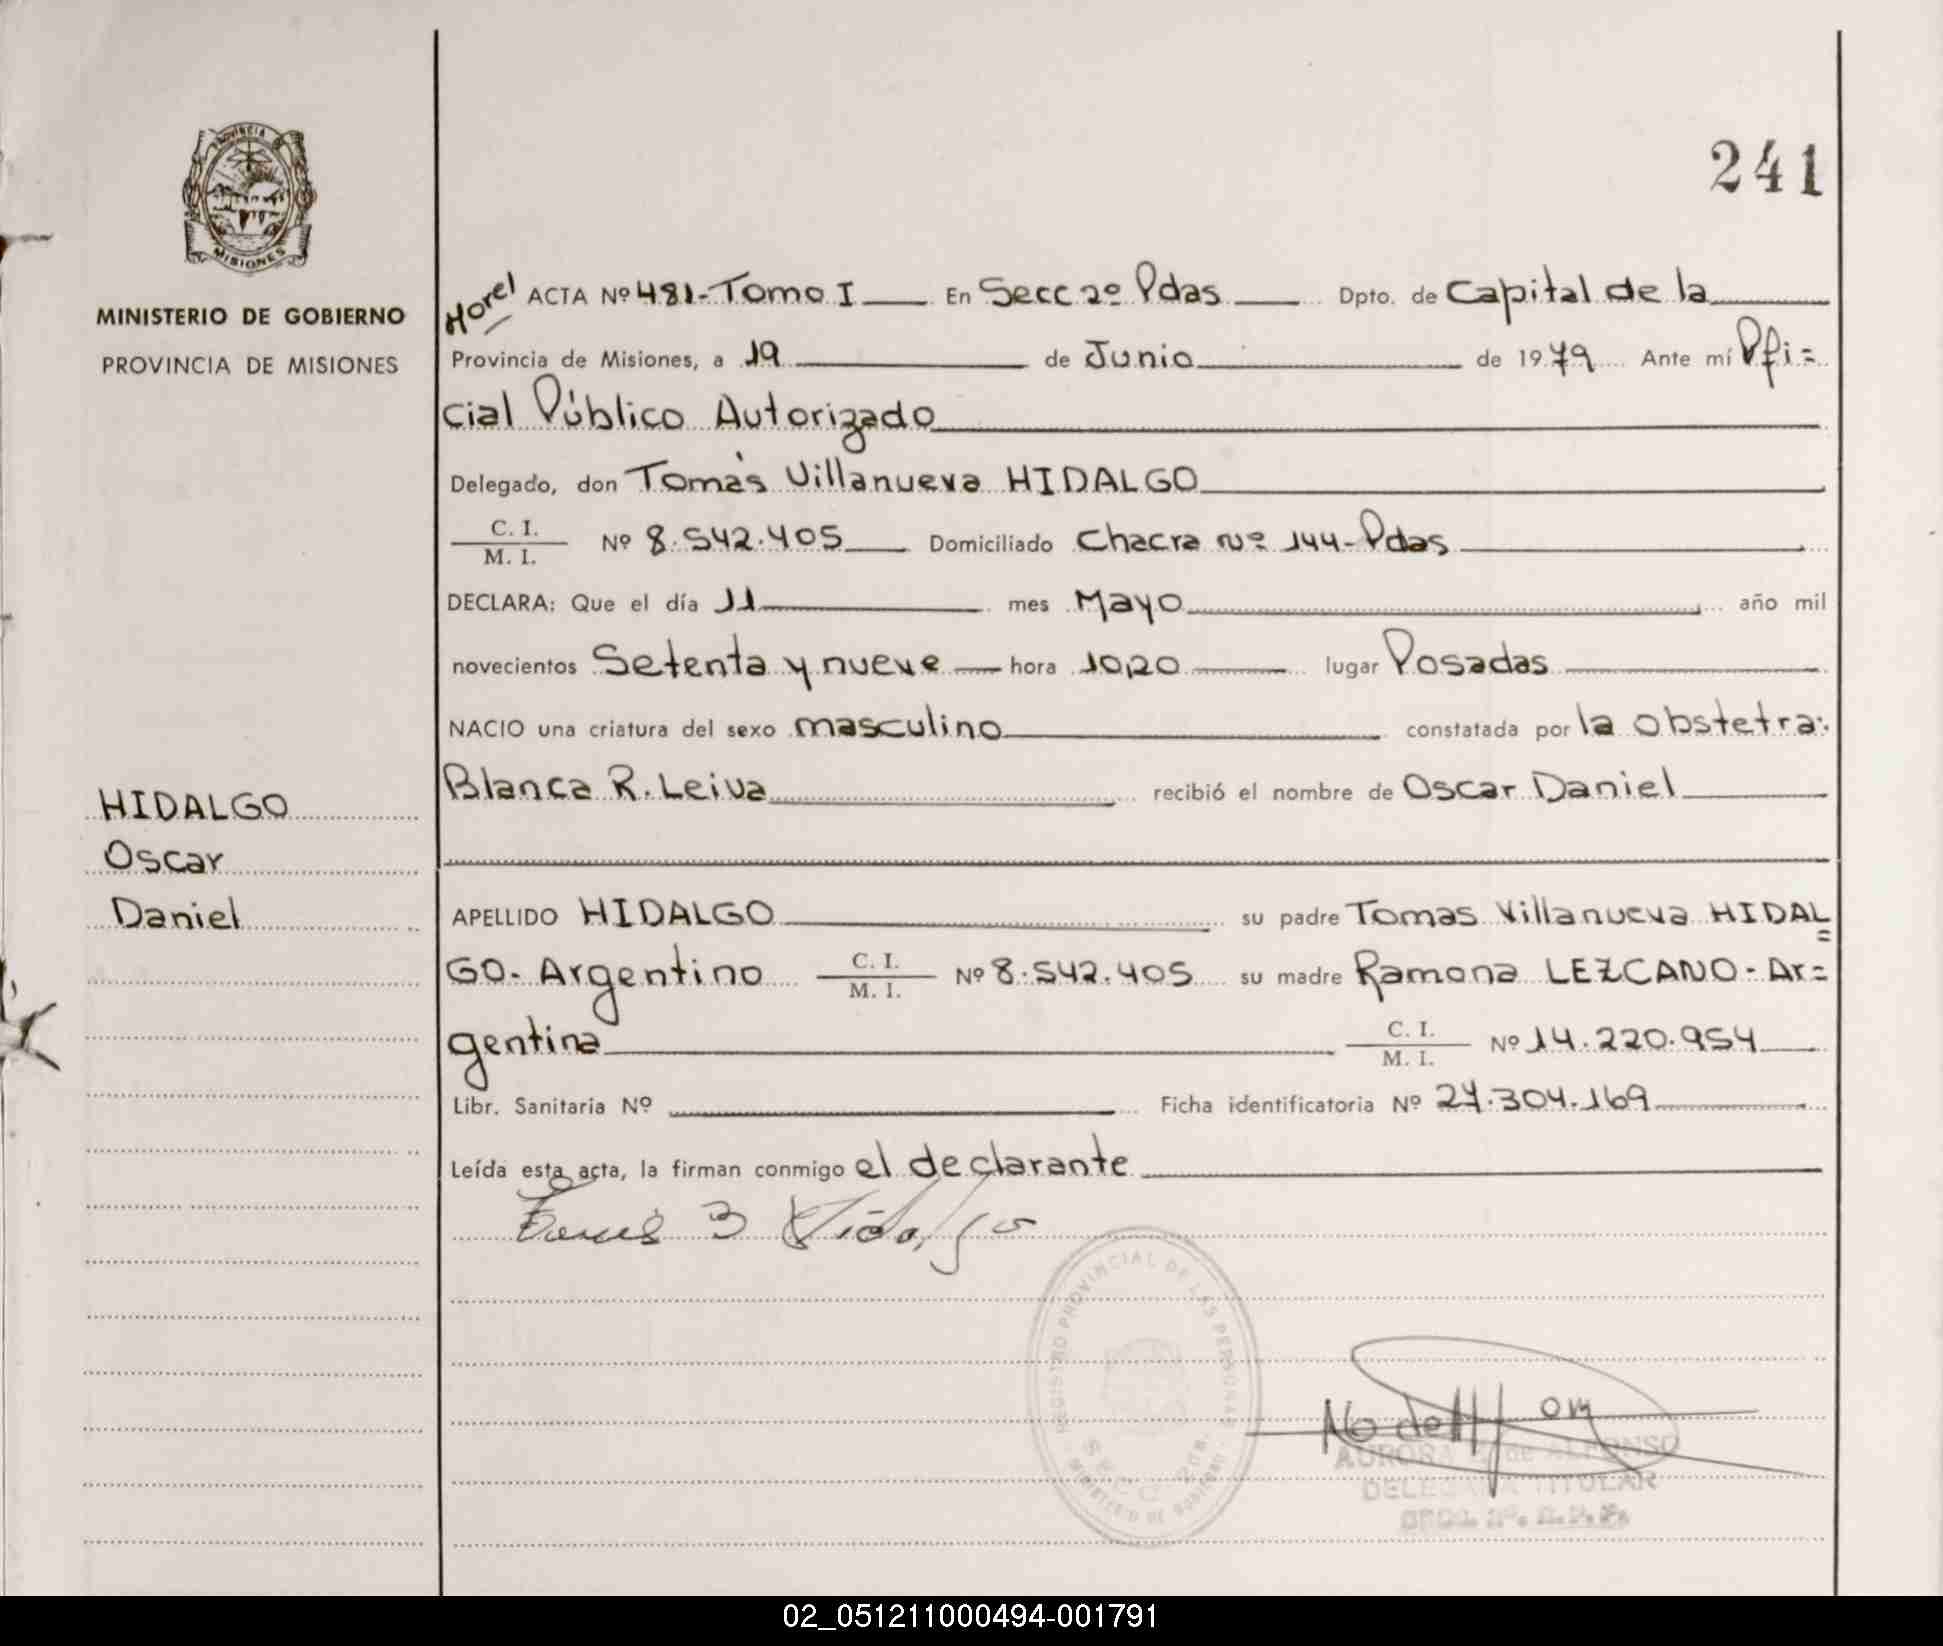 PROVINCIA
MISIONES
MINISTERIO DE GOBIERNO
PROVINCIA DE MISIONES
HIDALGO
Oscar
Daniel
241
ACTA Nº 481-Tomo I En Secc 2º Pdas Dpto. de Capital de la
Provincia de Misiones, a 19 de Junio de 1979 Ante mí Ofi=
cial Público Autorizado
Delegado, don Tomás Villanueva HIDALGO
C. I.
M. I. Nº 8.542.405 Domiciliado Chacra Nº 144-Pdas
DECLARA: Que el día 11 mes Mayo año mil
novecientos Setenta y nueve hora 10,20 lugar Posadas
NACIO una criatura del sexo masculino constatada por la obstetra:
Blanca R. Leiva recibió el nombre de Oscar Daniel
APELLIDO HIDALGO su padre Tomas Villanueva HIDAL=
GO- Argentino C. I.
M. I. Nº 8.542.405 su madre Ramona LEZCANO- Ar=
gentina C. I.
M. I. Nº 14.220.954
Libr. Sanitaria Nº Ficha identificatoria Nº 27.304.169
Leída esta acta, la firman conmigo el declarante
REGISTRO PROVINCIAL DE LAS PERSONAS
MINISTERIO DE GOBIERNO
AURORA de ALFONSO
DELEGADA TITULAR
SECC. 2º. R.P.P.
02_051211000494-001791